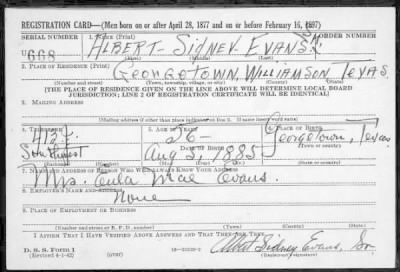 REGISTRATION CARD—(Men born on or after April 28, 1877 and on or before February 16, 1897)
SERIAL NUMBER 1. NAME (Print) ORDER NUMBER
U668 ALBERT-SIDNEY EVANS, SR.
2. PLACE OF RESIDENCE (Print)
GEORGETOWN, WILLIAMSON TEXAS
(Number and street) (Town, township, village, or city) (County) (State)
[THE PLACE OF RESIDENCE GIVEN ON THE LINE ABOVE WILL DETERMINE LOCAL BOARD
JURISDICTION; LINE 2 OF REGISTRATION CERTIFICATE WILL BE IDENTICAL]
3. MAILING ADDRESS
[Mailing address if other than place indicated on line 2. If same insert word same]
4. TELEPHONE 5. AGE IN YEARS 6. PLACE OF BIRTH
412 F. 56 Georgetown,
DATE OF BIRTH (Town or county)
Southwest Aug 5, 1885 Texas
(State or country)
7. NAME AND ADDRESS OF PERSON WHO WILL ALWAYS KNOW YOUR ADDRESS
Mrs. Eula Mae Evans.
8. EMPLOYER'S NAME AND ADDRESS
None
9. PLACE OF EMPLOYMENT OR BUSINESS
(Number and street or R. F. D. number) (Town) (County) (State)
I AFFIRM THAT I HAVE VERIFIED ABOVE ANSWERS AND THAT THEY ARE TRUE.
D. S. S. Form 1 Albert Sidney Evans, Sr.
(Revised 4-1-42) (over) (Registrant's signature)